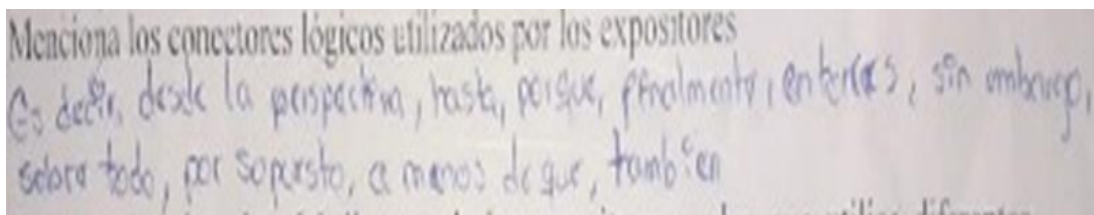 Menciona los conectores lógicos utilizados por los expositores
Es decir, desde la perspectiva, hasta, porque, finalmente, entonces, sin embargo,
sobre todo, por supuesto, a menos de que, también